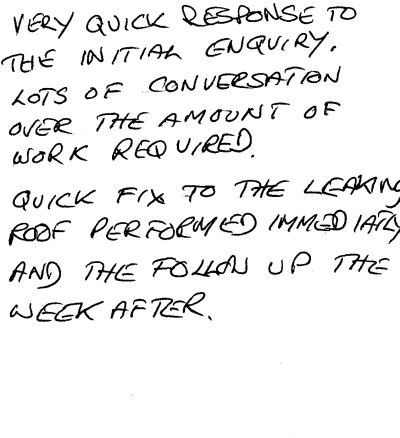 VERY QUICK RESPONSE TO
THE INITIAL ENQUIRY.
LOTS OF CONVERSATION
OVER THE AMOUNT OF
WORK REQUIRED.
QUICK FIX TO THE LEAKING
ROOF PERFORMED IMMEDIATLY
AND THE FOLLOW UP THE
WEEK AFTER.